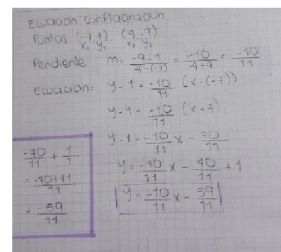 Ecuación Conflagración
Puntos (-7,1) (4,-9)
x₁ y₁ x₂ y₂
Pendiente m = -9-1/4-(-7) = -10/4+7 = -10/11
Ecuación: y-1 = -10/11 (x-(-7))
y-1 = -10/11 (x+7)
y-1 = -10/11 x - 70/11
y = -10/11 x - 70/11 + 1
y = -10/11 x - 59/11
-70/11 + 1/1
= -70+11/11
= -59/11